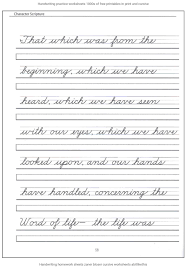 Handwriting practice worksheets: 1000s of free printables to print and connect
Character Scripture
That which was from the
beginning, which we have
heard, which we have seen
with our eyes, which we have
looked upon, and our hands
have handled, concerning the
Word of life— the life was